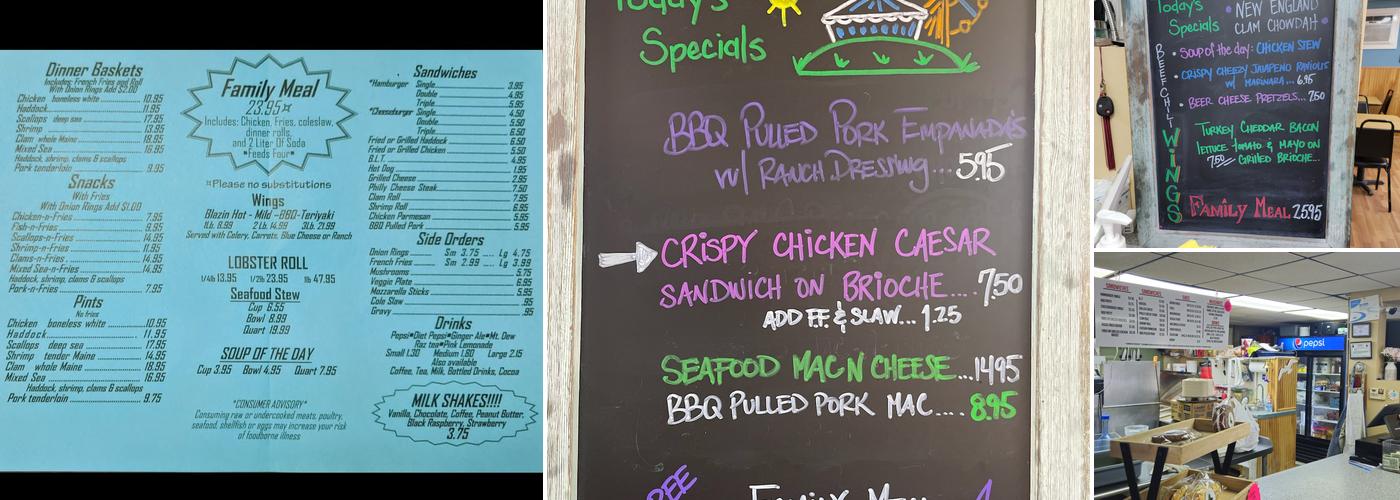 Dinner Baskets
Includes: French Fries and Roll
With Onion Rings Add $2.00
Chicken boneless white 10.95
Haddock 11.95
Scallops deep sea 17.95
Shrimp 13.95
Clam whole Maine 18.95
Mixed Sea 16.95
Haddock, shrimp, clams & scallops
Pork tenderloin 9.95
Snacks
With Fries
With Onion Rings Add $1.00
Chicken-n-Fries 7.95
Fish-n-Fries 9.95
Scallops-n-Fries 14.95
Shrimp-n-Fries 11.95
Clams-n-Fries 14.95
Mixed Sea-n-Fries 14.95
Haddock, shrimp, clams & scallops
Pork-n-Fries 7.95
Pints
No fries
Chicken boneless white 10.95
Haddock 11.95
Scallops deep sea 17.95
Shrimp tender Maine 14.95
Clam whole Maine 18.95
Mixed Sea 16.95
Haddock, shrimp, clams & scallops
Pork tenderloin 9.75
Family Meal
23.95¤
Includes: Chicken, Fries, coleslaw,
dinner rolls,
and 2 Liter Of Soda
*Feeds Four*
¤Please no substitutions
Wings
Blazin Hot - Mild -BBQ-Teriyaki
1Lb. 8.99 2 Lb. 14.99 3Lb. 21.99
Served with Celery, Carrots, Blue Cheese or Ranch
LOBSTER ROLL
1/4lb 13.95 1/2lb 23.95 lb 47.95
Seafood Stew
Cup 6.55
Bowl 8.99
Quart 19.99
SOUP OF THE DAY
Cup 3.95 Bowl 4.95 Quart 7.95
*CONSUMER ADVISORY*
Consuming raw or undercooked meats, poultry,
seafood, shellfish or eggs may increase your risk
of foodborne illness
Sandwiches
*Hamburger Single 3.95
Double 4.95
Triple 5.95
*Cheeseburger Single 4.50
Double 5.50
Triple 6.50
Fried or Grilled Haddock 6.50
Fried or Grilled Chicken 5.50
B.L.T. 4.95
Hot Dog 1.95
Grilled Cheese 2.95
Philly Cheese Steak 7.50
Clam Roll 7.95
Shrimp Roll 6.95
Chicken Parmesan 5.95
BBQ Pulled Pork 5.95
Side Orders
Onion Rings Sm 3.75 Lg 4.75
French Fries Sm 2.99 Lg 3.99
Mushrooms 5.75
Veggie Plate 6.95
Mozzarella Sticks 5.95
Cole Slaw .95
Gravy .95
Drinks
Pepsi*Diet Pepsi*Ginger Ale*Mt. Dew
Raz tea*Pink Lemonade
Small 1.30 Medium 1.80 Large 2.15
Also available
Coffee, Tea, Milk, Bottled Drinks, Cocoa
MILK SHAKES!!!!
Vanilla, Chocolate, Coffee, Peanut Butter,
Black Raspberry, Strawberry
3.75
Today's
Specials
BBQ PULLED PORK EMPANADA'S
w/ RANCH DRESSING... 5.95
CRISPY CHICKEN CAESAR
SANDWICH ON BRIOCHE.... 7.50
ADD F.F. & SLAW... 1.25
SEAFOOD MAC N CHEESE...1495
BBQ PULLED PORK MAC.... 8.95
FAMILY MEAL
Today's
Specials
NEW ENGLAND
CLAM CHOWDAH
• SOUP of the day: CHICKEN STEW
• CRISPY CHEEZY JALAPENO RAVIOLIS
w/ MARINARA... 6.95
• BEER CHEESE PRETZELS... 7.50
TURKEY CHEDDAR BACON
lettuce tomato & MAYO ON
7.50 GRILLED BRIOCHE...
BEEF CHILI
WINGS
FAMILY MEAL 25.95
pepsi